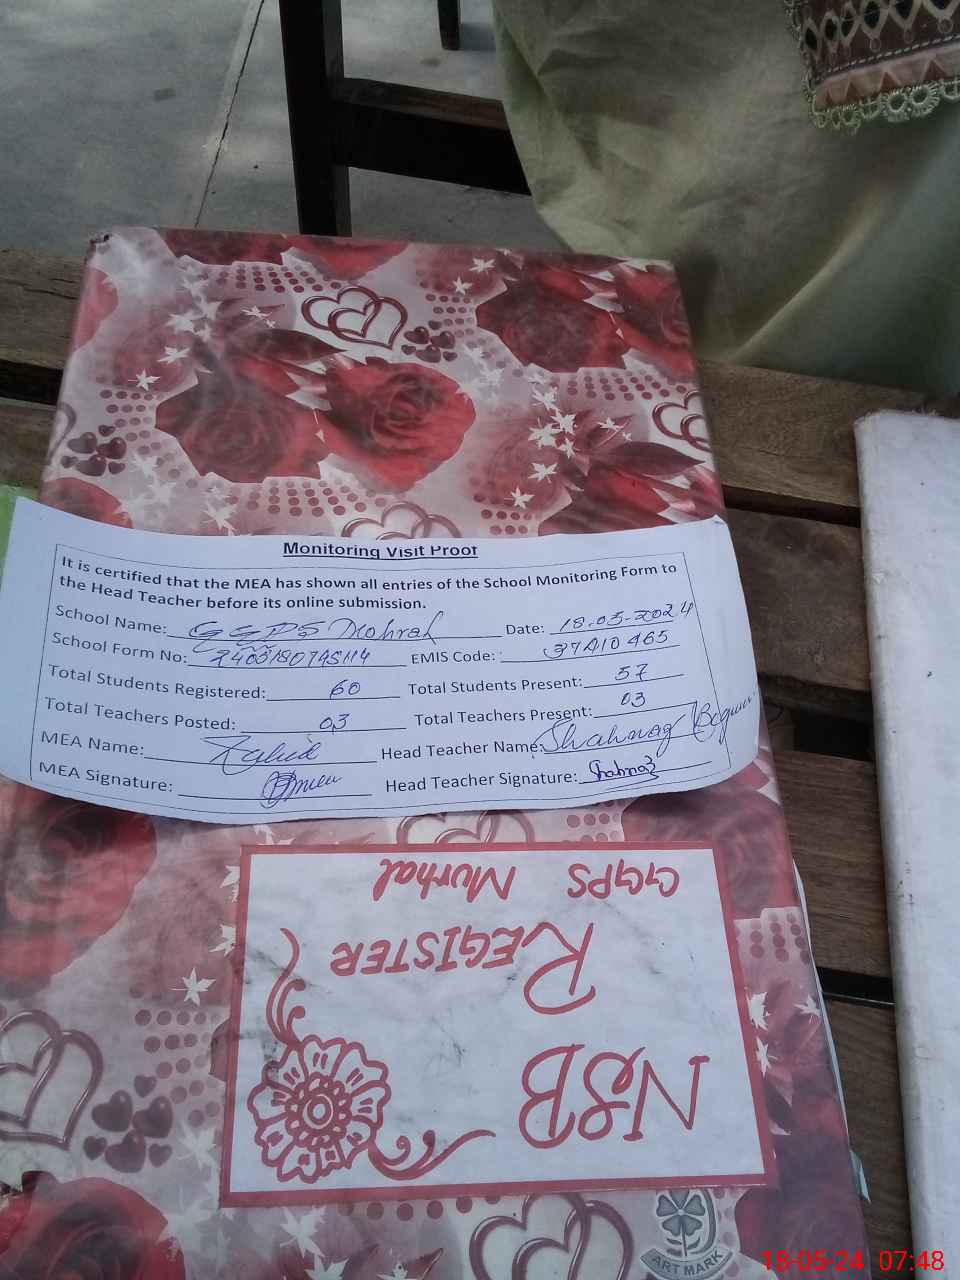 Monitoring Visit Proof
It is certified that the MEA has shown all entries of the School Monitoring Form to
the Head Teacher before its online submission.
School Name: GGPS Mohrah Date: 18.05-2024
School Form No: EMIS Code: 37410465
Total Students Registered: 60 Total Students Present: 57
Total Teachers Posted: 03 Total Teachers Present: 03
MEA Name: Zahid Head Teacher Name: Shahnaz Begum
MEA Signature: Head Teacher Signature: Shahnaz
NSB
REGISTER
GGPS Murhal
ART MARK
18-05-24 07:48